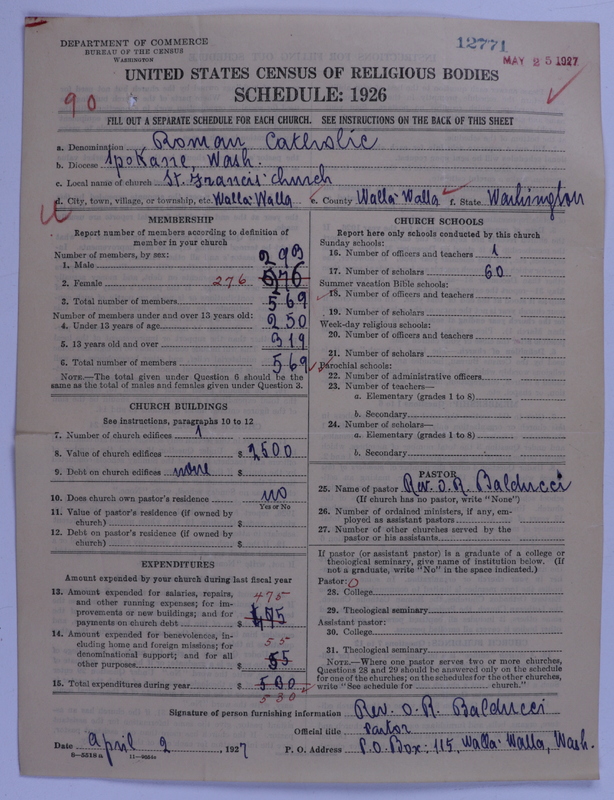 DEPARTMENT OF COMMERCE
BUREAU OF THE CENSUS
WASHINGTON
12771
MAY 25 1927
UNITED STATES CENSUS OF RELIGIOUS BODIES
SCHEDULE: 1926
90
FILL OUT A SEPARATE SCHEDULE FOR EACH CHURCH. SEE INSTRUCTIONS ON THE BACK OF THIS SHEET
a. Denomination Roman Catholic
b. Diocese Spokane, Wash.
c. Local name of church St. Francis' church
d. City, town, village, or township, etc. Walla-Walla e. County Walla-Walla f. State Washington
MEMBERSHIP
Report number of members according to definition of
member in your church
Number of members, by sex:
1. Male 293
2. Female 276 276
3. Total number of members 569
Number of members under and over 13 years old:
4. Under 13 years of age 250
5. 13 years old and over 319
6. Total number of members 569
NOTE.—The total given under Question 6 should be the
same as the total of males and females given under Question 3.
CHURCH BUILDINGS
See instructions, paragraphs 10 to 12
7. Number of church edifices 1
8. Value of church edifices $ 2500
9. Debt on church edifices none $
10. Does church own pastor's residence no
Yes or No
11. Value of pastor's residence (if owned by
church) $
12. Debt on pastor's residence (if owned by
church) $
EXPENDITURES
Amount expended by your church during last fiscal year
13. Amount expended for salaries, repairs,
and other running expenses; for im-
provements or new buildings; and for
payments on church debt $ 475
475
14. Amount expended for benevolences, in-
cluding home and foreign missions; for
denominational support; and for all
other purposes 55
55
15. Total expenditures during year $ 500
530
CHURCH SCHOOLS
Report here only schools conducted by this church
Sunday schools:
16. Number of officers and teachers 1
17. Number of scholars 60
Summer vacation Bible schools:
18. Number of officers and teachers
19. Number of scholars
Week-day religious schools:
20. Number of officers and teachers
21. Number of scholars
Parochial schools:
22. Number of administrative officers
23. Number of teachers—
a. Elementary (grades 1 to 8)
b. Secondary
24. Number of scholars—
a. Elementary (grades 1 to 8)
b. Secondary
PASTOR
25. Name of pastor Rev. O. R. Balducci
(If church has no pastor, write "None")
26. Number of ordained ministers, if any, em-
ployed as assistant pastors
27. Number of other churches served by the
pastor or his assistants
If pastor (or assistant pastor) is a graduate of a college or
theological seminary, give name of institution below. (If
not a graduate, write "No" in the space indicated.)
Pastor: 0
28. College
29. Theological seminary
Assistant pastor:
30. College
31. Theological seminary
NOTE.—Where one pastor serves two or more churches,
Questions 28 and 29 should be answered only on the schedule
for one of the churches; on the schedules for the other churches,
write "See schedule for church."
Signature of person furnishing information Rev. O. R. Balducci
Official title Pastor
Date April 2, 1927 P. O. Address P.O. Box: 115, Walla-Walla, Wash.
8—5518a